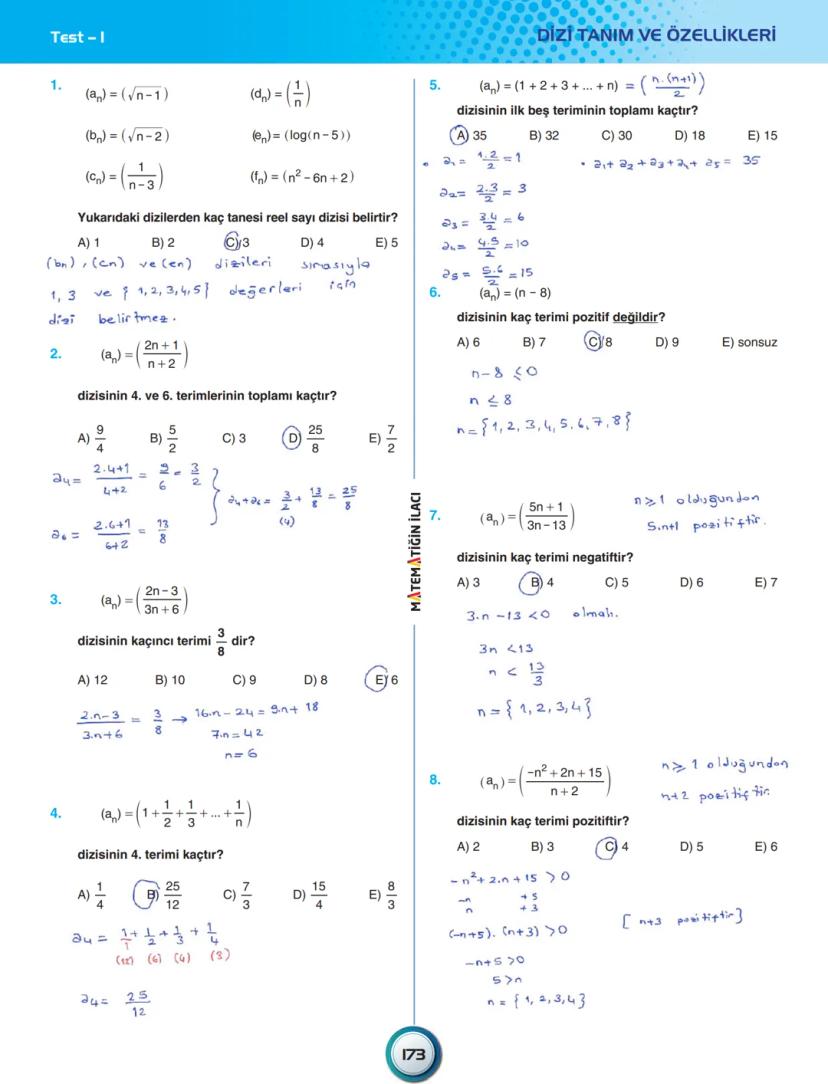 Test – I
DİZİ TANIM VE ÖZELLİKLERİ
1.
(aₙ) = (√n-1)
(dₙ) = (1/n)
(bₙ) = (√n-2)
(eₙ) = (log(n-5))
(cₙ) = (1/(n-3))
(fₙ) = (n² - 6n + 2)
Yukarıdaki dizilerden kaç tanesi reel sayı dizisi belirtir?
A) 1 B) 2 C) 3 D) 4 E) 5
(bn), (cn) ve (en) dizileri sırasıyla
1, 3 ve {1,2,3,4,5} değerleri için
dizi belirtmez.
2.
(aₙ) = ((2n+1)/(n+2))
dizisinin 4. ve 6. terimlerinin toplamı kaçtır?
A) 9/4 B) 5/2 C) 3 D) 25/8 E) 7/2
a₄ = (2.4+1)/(4+2) = 9/6 = 3/2
a₄+a₆ = 3/2 + 13/8 = 25/8
(4)
a₆ = (2.6+1)/(6+2) = 13/8
3.
(aₙ) = ((2n-3)/(3n+6))
dizisinin kaçıncı terimi 3/8 dir?
A) 12 B) 10 C) 9 D) 8 E) 6
(2.n-3)/(3.n+6) = 3/8 → 16.n - 24 = 9.n + 18
7.n = 42
n = 6
4.
(aₙ) = (1 + 1/2 + 1/3 + ... + 1/n)
dizisinin 4. terimi kaçtır?
A) 1/4 B) 25/12 C) 7/3 D) 15/4 E) 8/3
a₄ = 1/1 + 1/2 + 1/3 + 1/4
(12) (6) (4) (3)
a₄ = 25/12
MATEMATİĞİN İLACI
5.
(aₙ) = (1 + 2 + 3 + ... + n) = (n.(n+1)/2)
dizisinin ilk beş teriminin toplamı kaçtır?
A) 35 B) 32 C) 30 D) 18 E) 15
• a₁ = 1.2/2 = 1
• a₁+a₂+a₃+a₄+a₅ = 35
a₂ = 2.3/2 = 3
a₃ = 3.4/2 = 6
a₄ = 4.5/2 = 10
a₅ = 5.6/2 = 15
6.
(aₙ) = (n - 8)
dizisinin kaç terimi pozitif değildir?
A) 6 B) 7 C) 8 D) 9 E) sonsuz
n-8 ≤ 0
n ≤ 8
n = {1,2,3,4,5,6,7,8}
7.
(aₙ) = ((5n+1)/(3n-13))
n≥1 olduğundan
5.n+1 pozitiftir.
dizisinin kaç terimi negatiftir?
A) 3 B) 4 C) 5 D) 6 E) 7
3.n -13 <0 olmalı.
3n <13
n < 13/3
n = {1,2,3,4}
8.
(aₙ) = ((-n² + 2n + 15)/(n+2))
n≥1 olduğundan
n+2 pozitiftir.
dizisinin kaç terimi pozitiftir?
A) 2 B) 3 C) 4 D) 5 E) 6
-n² + 2.n + 15 > 0
-n +5
n +3
(-n+5).(n+3) > 0
[n+3 pozitiftir]
-n+5 >0
5 >n
n = {1,2,3,4}
173